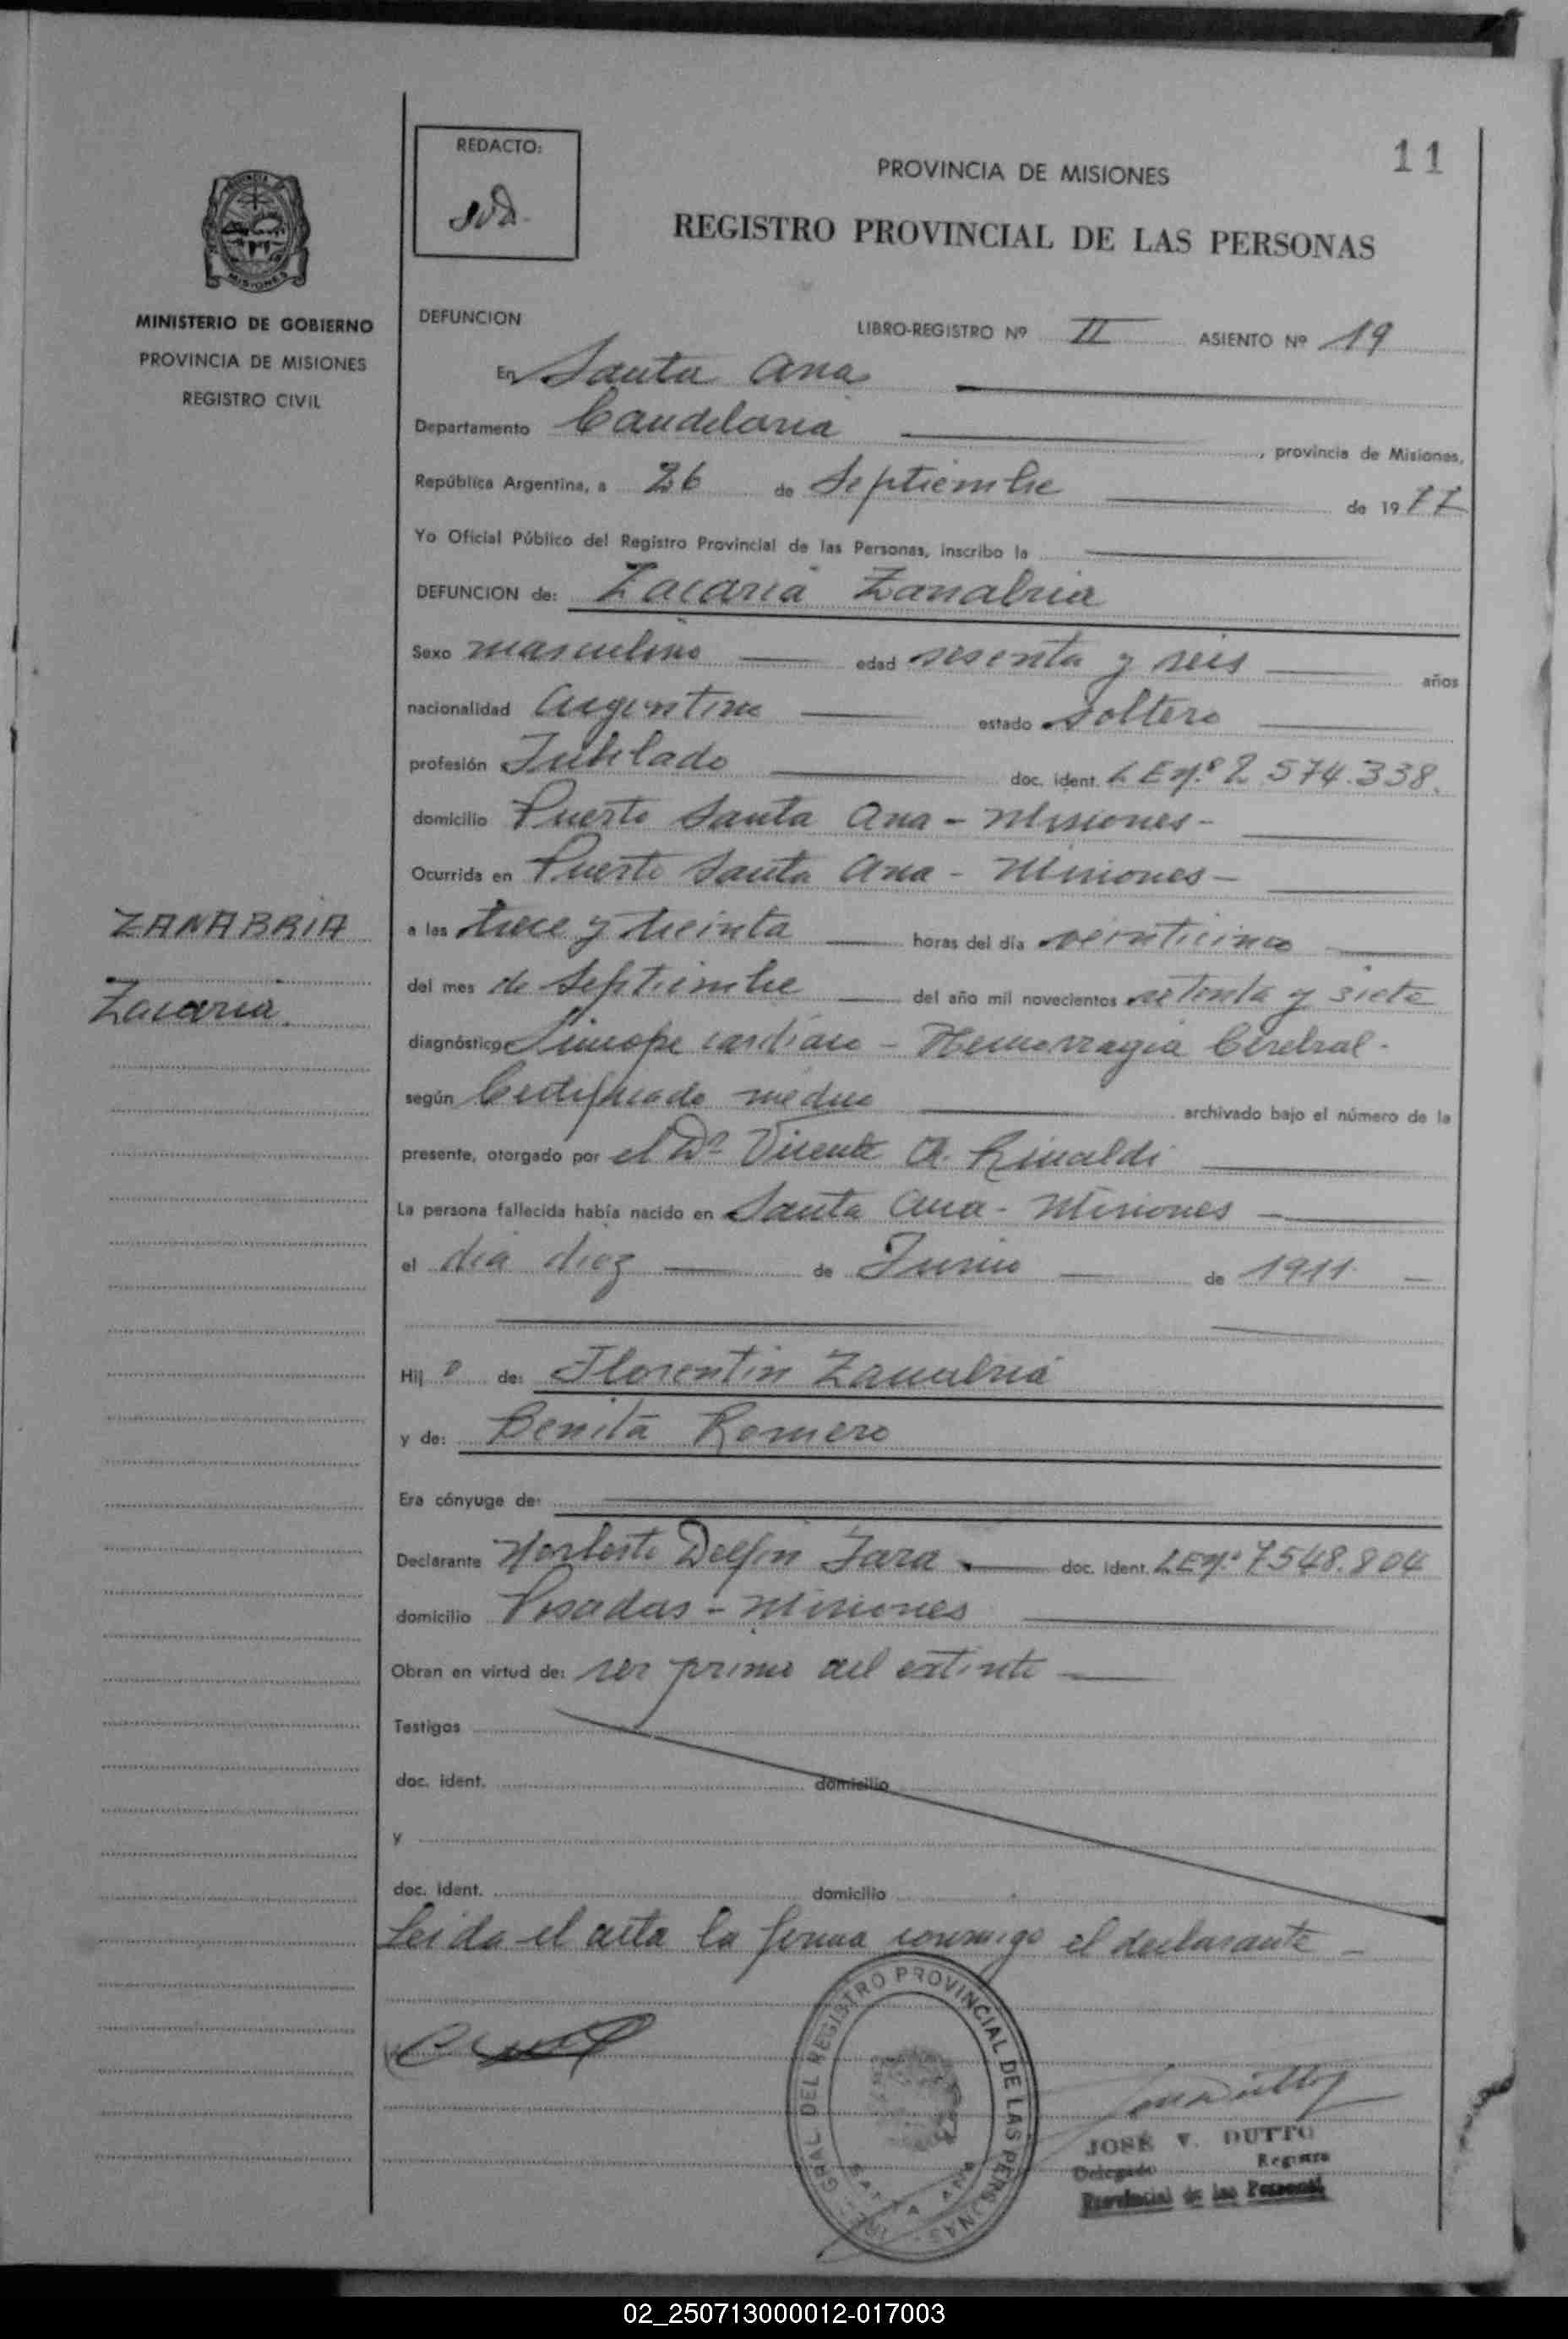 REDACTO:
11
PROVINCIA DE MISIONES
REGISTRO PROVINCIAL DE LAS PERSONAS
MISIONES
MINISTERIO DE GOBIERNO
PROVINCIA DE MISIONES
REGISTRO CIVIL
DEFUNCION
LIBRO-REGISTRO Nº II ASIENTO Nº 19
En Santa Ana
Departamento Candelaria, provincia de Misiones,
República Argentina, a 26 de Septiembre de 1977
Yo Oficial Público del Registro Provincial de las Personas, inscribo la
DEFUNCION de: Zacaria Zanabria
Sexo masculino edad sesenta y seis años
nacionalidad Argentino estado soltero
profesión Jubilado doc. ident. L E Nº 2 574.338.
domicilio Puerto Santa Ana - Misiones -
Ocurrida en Puerto Santa Ana - Misiones -
ZANABRIA
Zacaria
a las trece y treinta horas del día veinticinco
del mes de Septiembre del año mil novecientos setenta y siete
diagnóstico Sincope cardiaco - Hemorragia Cerebral -
según Certificado medico archivado bajo el número de la
presente, otorgado por el Dr Vicente A. Rinaldi
La persona fallecida había nacido en Santa Ana - Misiones
el dia diez de Junio de 1911
Hij o de: Florentin Zanabria
y de: Benita Romero
Era cónyuge de:
Declarante Norberto Delfin Jara doc. ident. L E Nº 7.548.804
domicilio Posadas - Misiones
Obran en virtud de: ser primo del extinto
Testigos
doc. ident. domicilio
y
doc. ident. domicilio
Leida el acta la firma conmigo el declarante -
GRAL DEL REGISTRO PROVINCIAL DE LAS PERSONAS
SANTA ANA
JOSE V. DUTTO
Delegado Registro
Provincial de las Personas
02_250713000012-017003